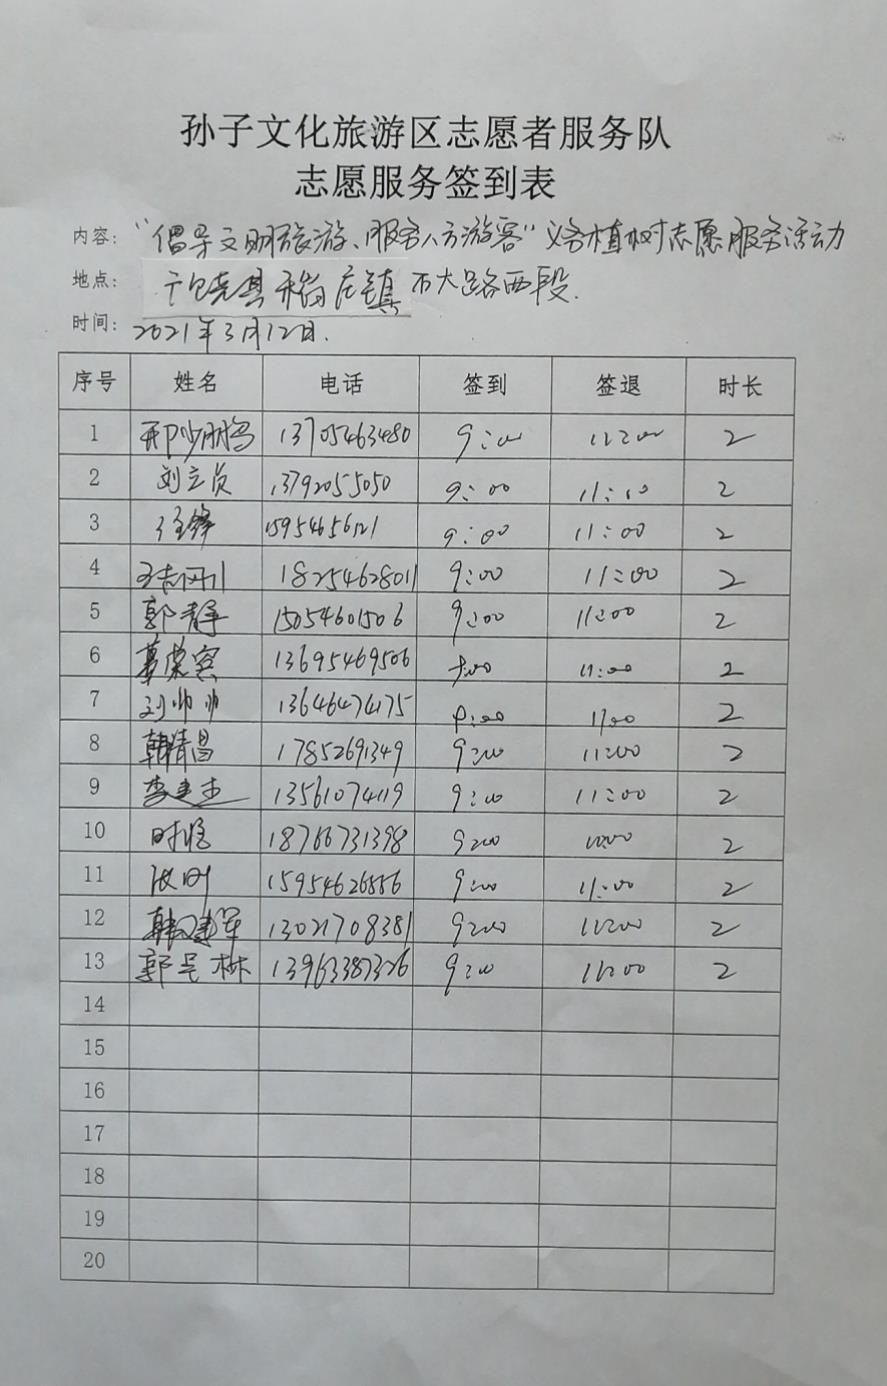 孙子文化旅游区志愿者服务队
志愿服务签到表
内容："倡导文明旅游、服务八方游客"义务植树志愿服务活动
地点：广饶县 庄镇 大路西段.
时间：2021年3月12日.
序号 姓名 电话 签到 签退 时长
1 邢 鹏 13705463480 9:00 11:00 2
2 刘立 13792055050 9:00 11:10 2
3 锋 15954656121 9:00 11:00 2
4 18254628011 9:00 11:00 2
5 郭静 15054601506 9:00 11:00 2
6 荣宾 13695469506 9:00 11:00 2
7 刘帅帅 13646474175 9:00 11:00 2
8 韩清昌 17852691349 9:00 11:00 2
9 李建杰 13561074119 9:00 11:00 2
10 时 18766731398 9:00 2
11 张刚 15954626886 9:00 11:00 2
12 韩建军 13021708381 9:00 11:00 2
13 郭 林 13963387326 9:00 11:00 2
14
15
16
17
18
19
20